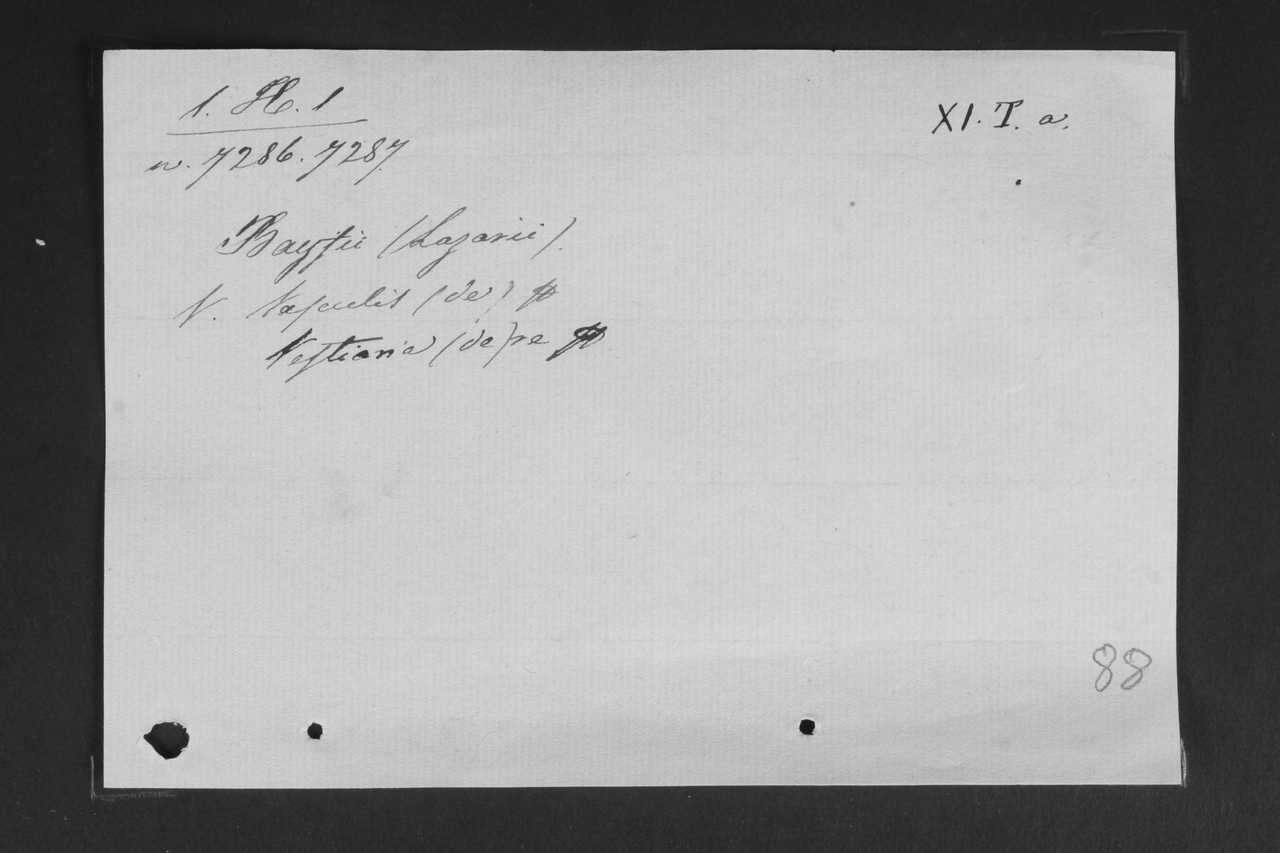 1. H. 1
XI. T. a.
n. 7286. 7287.
Bayfii (Lazarii).
V. Vasculis (de)
Vestiaria (de) re
88